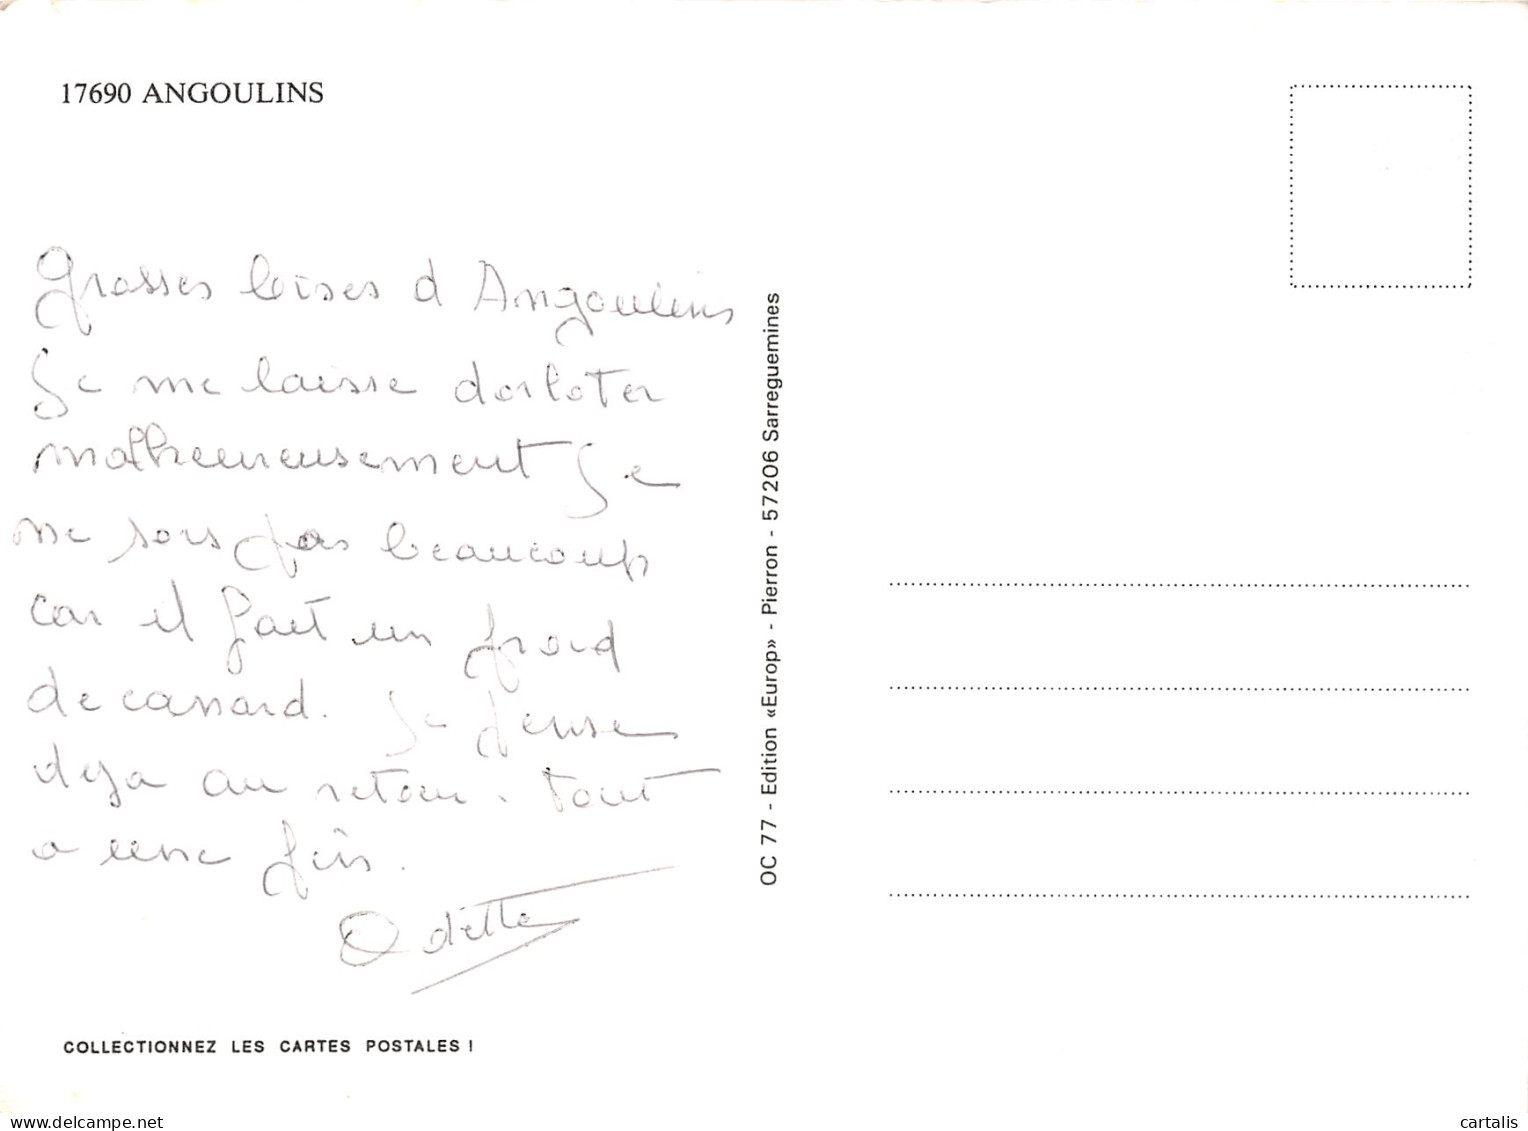 17690 ANGOULINS
Grosses bises d Angoulins
Je me laisse dorloter
malheureusement Je
ne sors pas beaucoup
car il fait un froid
de canard. Je pense
deja au retour. Tout
a une fin.
Odette
COLLECTIONNEZ LES CARTES POSTALES !
OC 77 - Edition «Europ» - Pierron - 57206 Sarreguemines
www.delcampe.net
cartalis